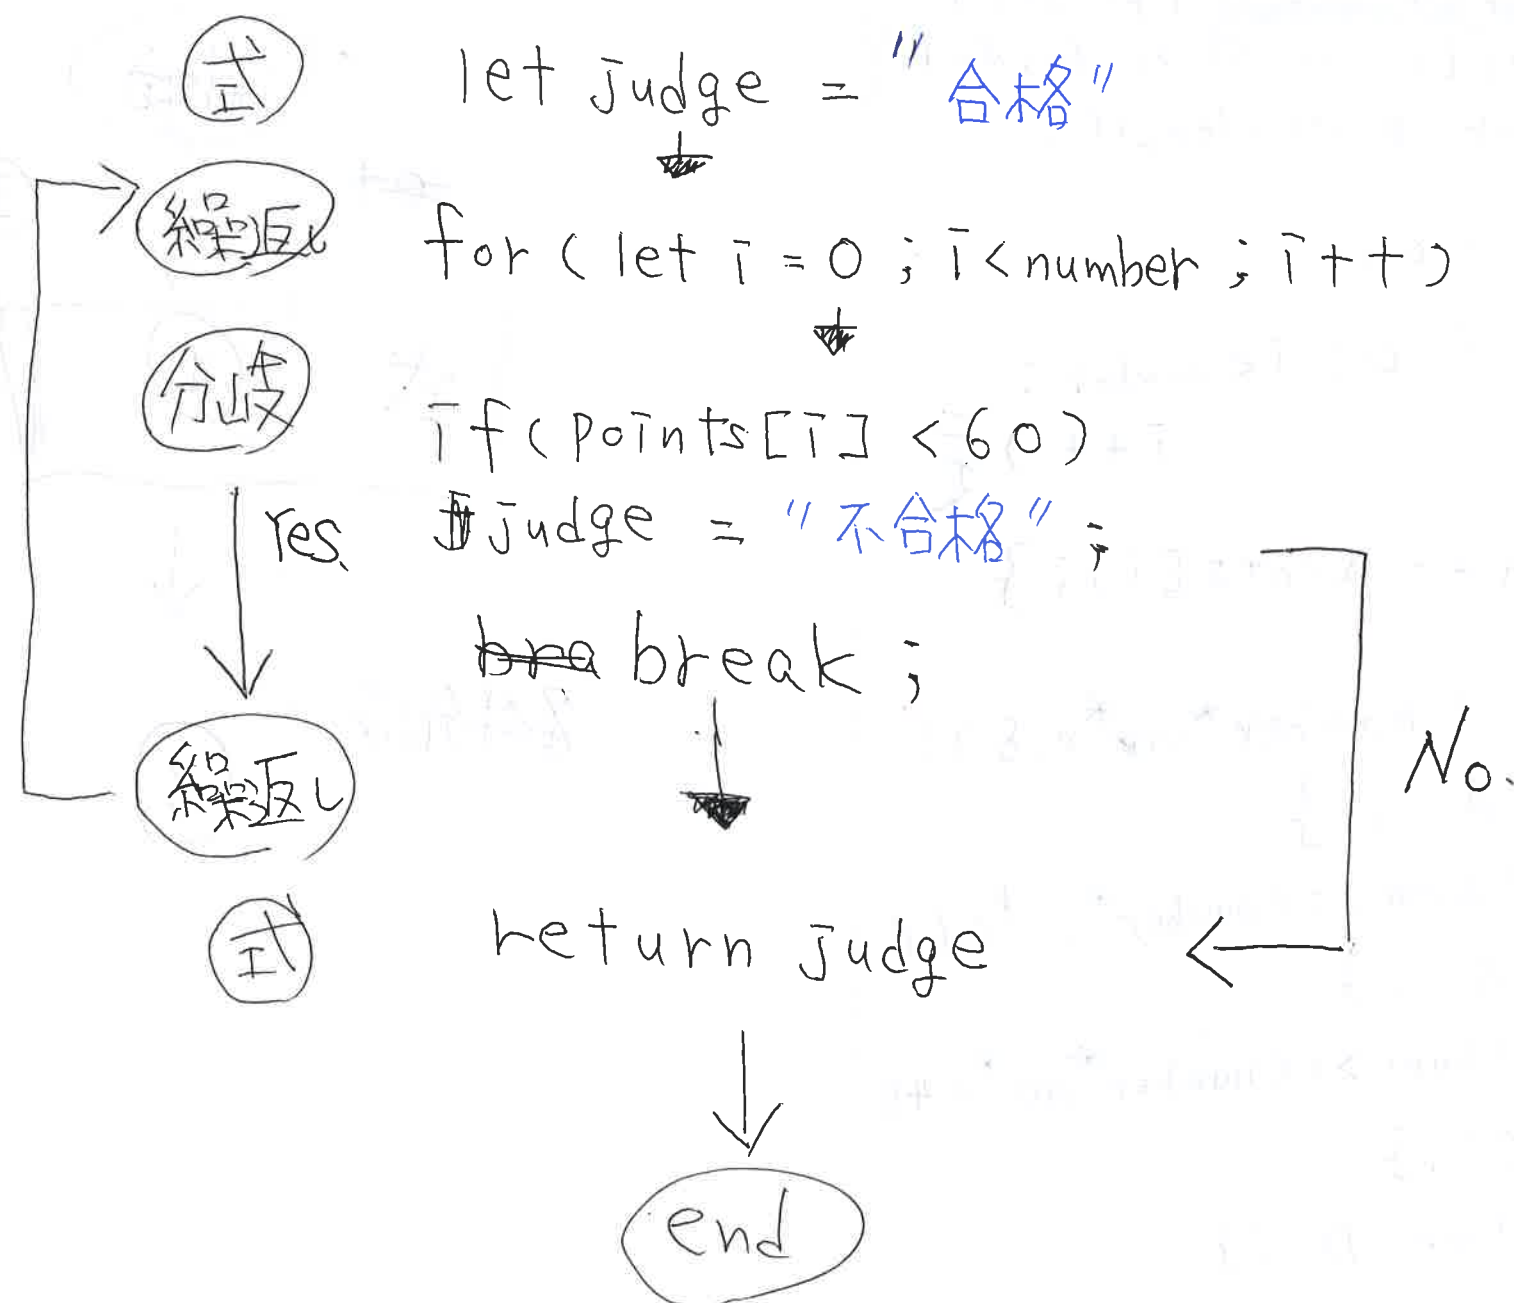 式 let judge = "合格"
繰返し for ( let i = 0 ; i < number ; i++ )
分岐 if ( points [ i ] < 60 )
Yes. judge = "不合格" ;
bra break ;
No.
繰返し
式 return judge
end